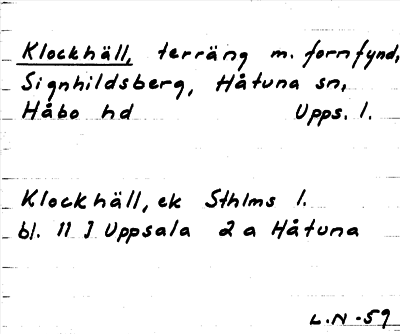 Klockhäll, terräng m. fornfynd,
Signhildsberg, Håtuna sn,
Håbo hd Upps. l.
Klockhäll, ek Sthlms l.
bl. 11 I Uppsala 2a Håtuna
L.N -59